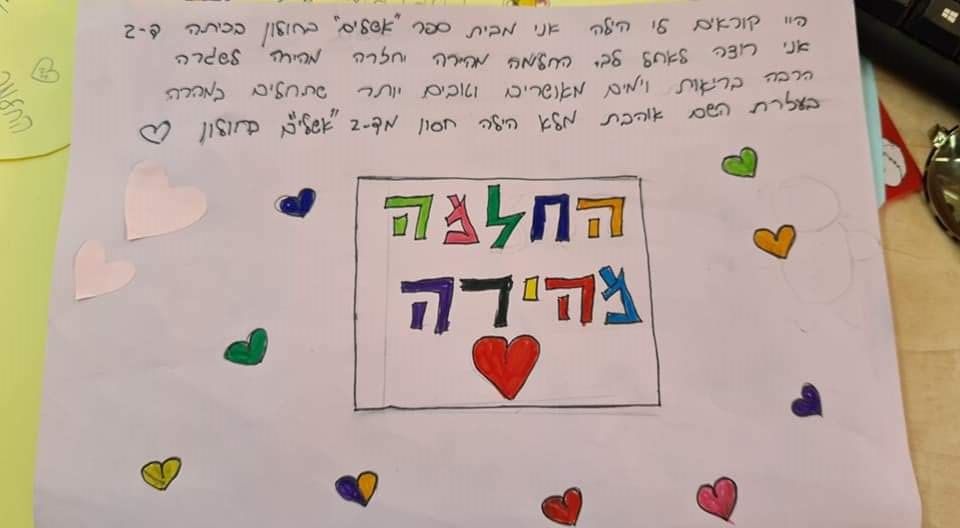 היי קוראים לי הילה אני מבית ספר "אשלים" בחולון בכיתה ד-2
אני רוצה לאחל לכם החלמה מהירה וחזרה מהירה לשגרה
הרבה בריאות וימים מאושרים וטובים יותר שתחלים במהרה
בעזרת השם אוהבת מלא הילה חסון מד-2 "אשלים" בחולון
החלמה
מהירה